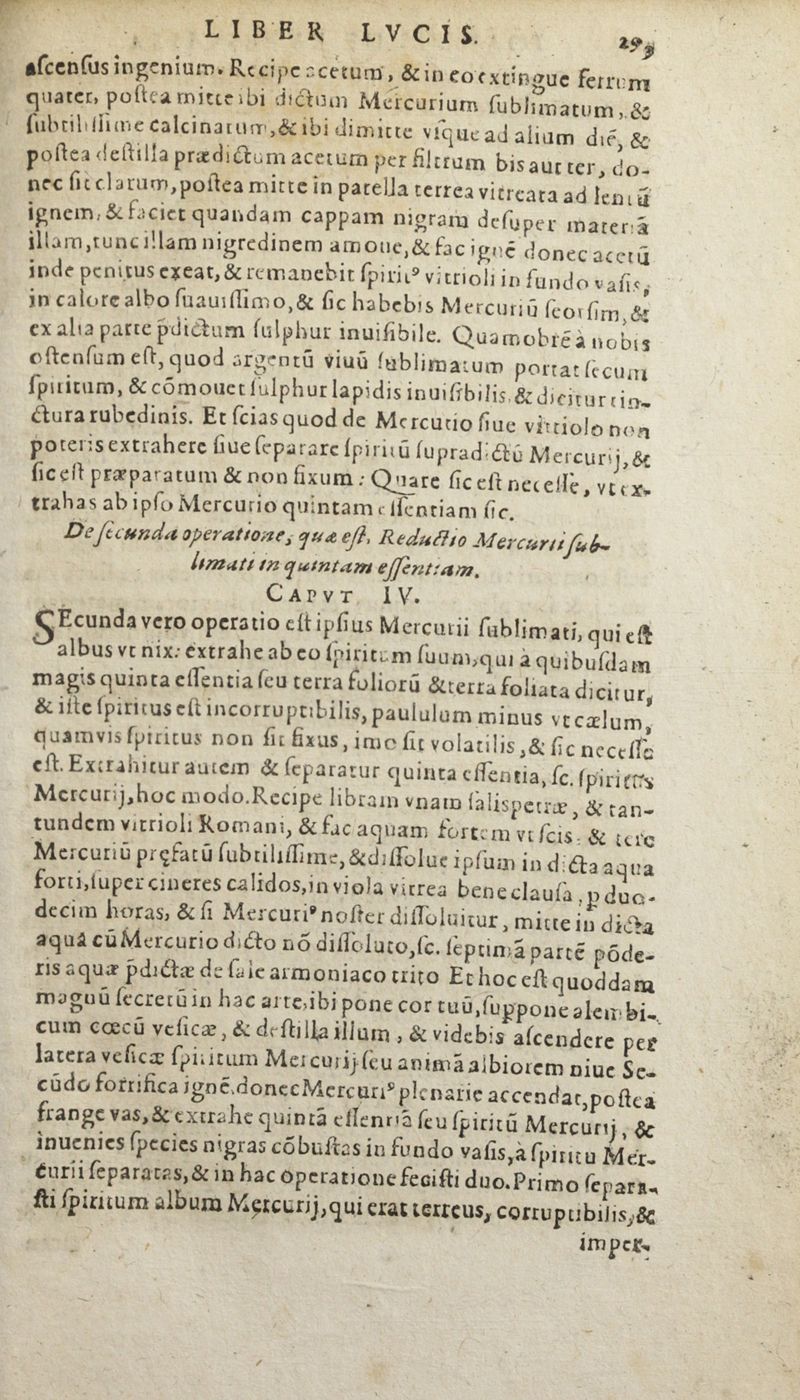 LIBER LVCIS. 299
aſcenſus ingenium. Recipe acetum, & in eo extingue ferrum
quater, poſtea mitte ibi dictum Mercurium ſublimatum, &
ſubtiliſſime calcinatum, & ibi dimitte vſque ad alium dié, &
poſtea deſtilla prædictum acetum per filtrum bis aut ter, do-
nec ſit clarum, poſtea mitte in patella terrea vitreata ad lentū
ignem, & faciet quandam cappam nigram deſuper materiã
illam, tunc illam nigredinem amoue, & fac igné donec acetū
inde penitus exeat, & remanebit ſpiritꝰ vitrioli in fundo vaſis,
in calore albo ſuauiſſimo, & ſic habebis Mercuriū ſeorſim, &
ex alia parte p̄dictum ſulphur inuiſibile. Quamobré à nobis
oſtenſum eſt, quod argentū viuū ſublimatum portat ſecum
ſpiritum, & cõmouet ſulphur lapidis inuiſibilis, & dicitur tin-
ctura rubedinis. Et ſcias quod de Mercurio ſiue vitriolo non
poteris extrahere ſiue ſeparare ſpiritū ſupradictū Mercurij, &
ſic eſt præparatum & non fixum: Quare ſic eſt neceſſe, vt ex-
trahas ab ipſo Mercurio quintam eſſentiam ſic.
De ſecunda operatione, quæ eſt, Reductio Mercurii ſub-
limati in quintam eſſentiam.
CAPVT IV.
SEcunda vero operatio eſt ipſius Mercurii ſublimati, qui eſt
albus vt nix: extrahe ab eo ſpiritum ſuum, qui à quibuſdam
magis quinta eſſentia ſeu terra foliorū & terra foliata dicitur,
& iſte ſpiritus eſt incorruptibilis, paululum minus vt cælum,
quamvis ſpiritus non ſit fixus, imo ſit volatilis, & ſic neceſſe
eſt. Extrahitur autem & ſeparatur quinta eſſentia, ſc. ſpiritus
Mercurij, hoc modo. Recipe libram vnam ſalis petræ, & tan-
tundem vitrioli Romani, & fac aquam fortem vt ſcis, & tere
Mercuriū pręfatū ſubtiliſſime, & diſſolue ipſum in dicta aqua
forti, ſuper cineres calidos, in viola vitrea bene clauſa, p duo-
decim horas, & ſi Mercuriꝰ noſter diſſoluitur, mitte in dicta
aquã cū Mercurio dicto nõ diſſoluto, ſc. ſeptimã parté põde-
ris aquæ p̄dictæ de ſale armoniaco trito Et hoc eſt quoddam
magnū ſecretū in hac arte, ibi pone cor tuū, ſuppone alembi-
cum cœcū veſicæ, & deſtilla illum, & videbis aſcendere per
latera veſicæ ſpiritum Mercurij ſeu animã albiorem niue Se-
cūdo fortifica igné, donec Mercuriꝰ plenarie accendat, poſtea
frange vas, & extrahe quintã eſſentiã ſeu ſpiritū Mercurij, &
inuenies ſpecies nigras cõbuſtas in fundo vaſis, à ſpiritu Mer-
curii ſeparatas, & in hac operatione feciſti duo. Primo ſepara-
ſti ſpiritum album Mercurij, qui erat terreus, corruptibilis, &
imper-